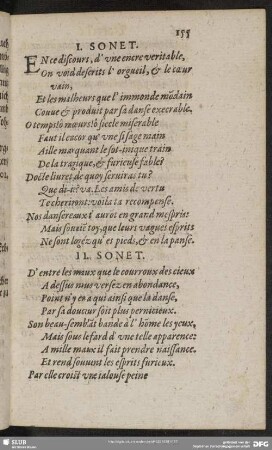 155
I. SONET.
EN ce discours, d'vne encre veritable,
On void descrits l'orgueil, & le cœur
vain,
Et les malheurs que l'immonde mõdain
Couue & produit par sa danse execrable.
O temps! ô mœurs! ô siecle miserable
Faut il encor qu'vne si sage main
Aille marquant le fot-inique train
De la tragique, & furieuse fable?
Docte liuret de quoy seruiras tu?
Que dit-va. Les amis de vertu
Te cheriront: voila ta recompense.
Nos dansereaux t'auront en grand mespris
Mais que leurs vagues esprits
Ne sont logéz qu'et pieds, & en la panse.
II. SONET.
D'entre les maux que le courroux des cieux
A dessus nous versez en abondance,
Point n'y en a qui ainsi que la danse,
Par sa douceur soit plus pernicieux.
Son beau-semblãt bande à l'hõme les yeux,
Mais sous le fard d'vne telle apparence:
A mille maux il fait prendre naissance.
Et rend souuent les esprits furieux.
Par elle croist vne ialouse peine
SLUB
DFG